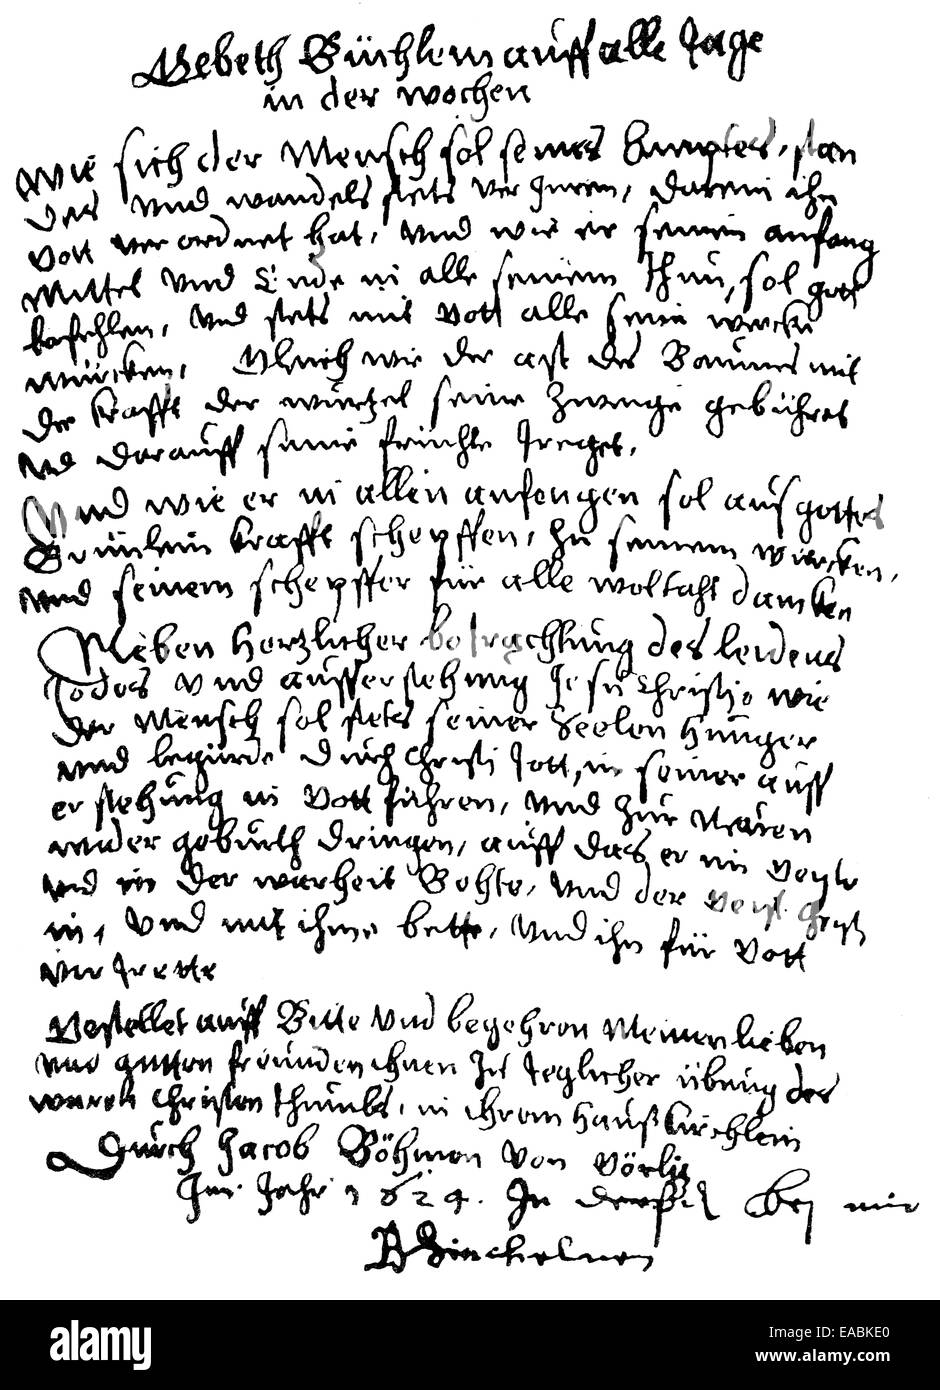 Gebeth Büchlein auff alle Tage
in der wochen
Wie sich der Mensch sol seines Amptes, stan
des vnd wandels stets er inren, darein ihn
Gott ver ordnet hat, vnd wie er seinen anfang
Mittel vnd Ende in alle seinem thun, sol gott
befehlen, vnd stets mit Gott alle seine wercke
würcken, Gleich wie der ast des Baumes mit
der krafft der wurtzel seine Zweige gebühret
vnd darauff seine früchte treget.
Vnd wie er in allen anfengen sol aus gottes
Brünlein krafft schepffen, zu seinem wircken,
vnd seinem schepffer für alle woltaht dancken
Neben hertzlicher betrachtung des leidens
todes vnd aufferstehung Jesu Christi, wie
der Mensch sol stets seiner Seelen Hunger
vnd begirde durch Christi Tott, in seiner auff
er stehung in Gott führen, vnd zur Neuen
wider geburth dringen, auff das er im geiste
vnd in der warheit Behte, vnd der geist Christi
in, vnd mit ihme bette, vnd ihn für Gott
ver trette
Gestellet auff Bitte vnd begehren Meiner lieben
vnd gutten freunden ihnen zu teglicher übung des
waren Christenthumbs, in ihrem Hauß kirchlein
Durch Jacob Böhmen von Görlitz
Im Jahr 1624. In bei mir
alamy stock photo
EABKE0
www.alamy.com